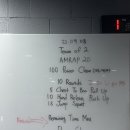 Team of 2
AMRAP 20
100 Power Clean
10 Rounds
8 Chest To Bar Pull Up
10 Hand Release Push Up
18 Jump Squat
Remaining Time Max